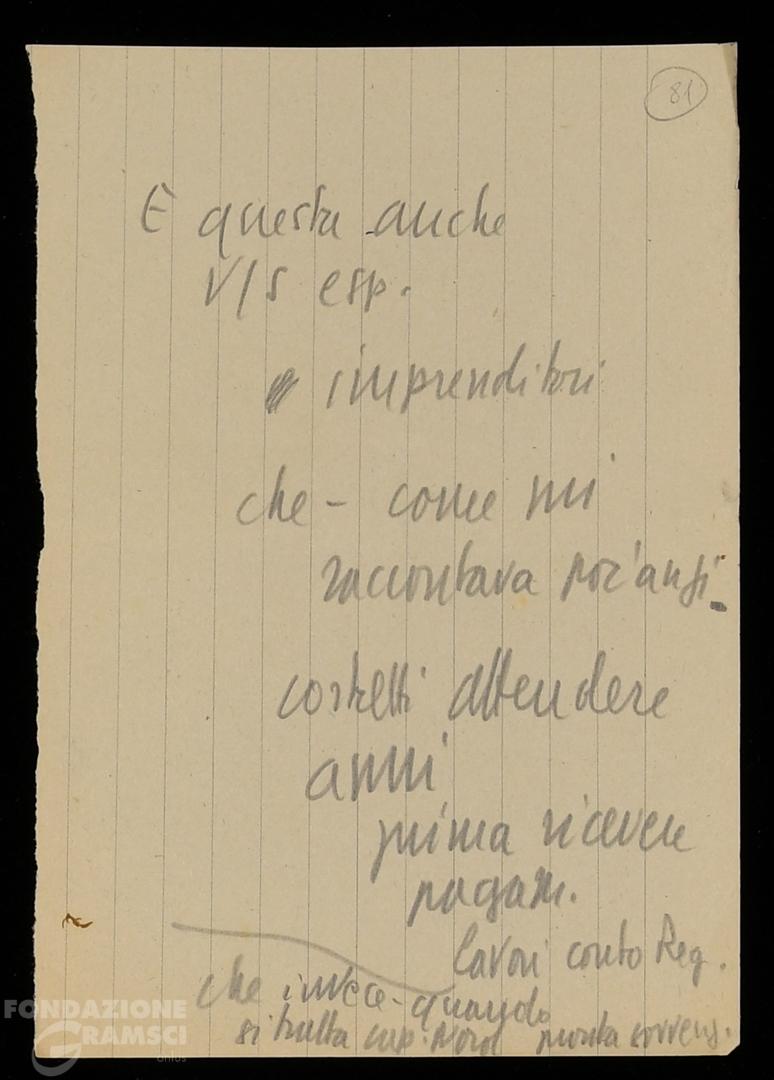 81
E questa anche
V/S esp.
imprenditori
che - come mi
raccontava poc'anzi -
costretti attendere
anni
prima ricevere
pagam.
lavori conto Reg.
che invece - quando
si tratta imp. Nord pronta sovvenz.
FONDAZIONE
GRAMSCI
onlus